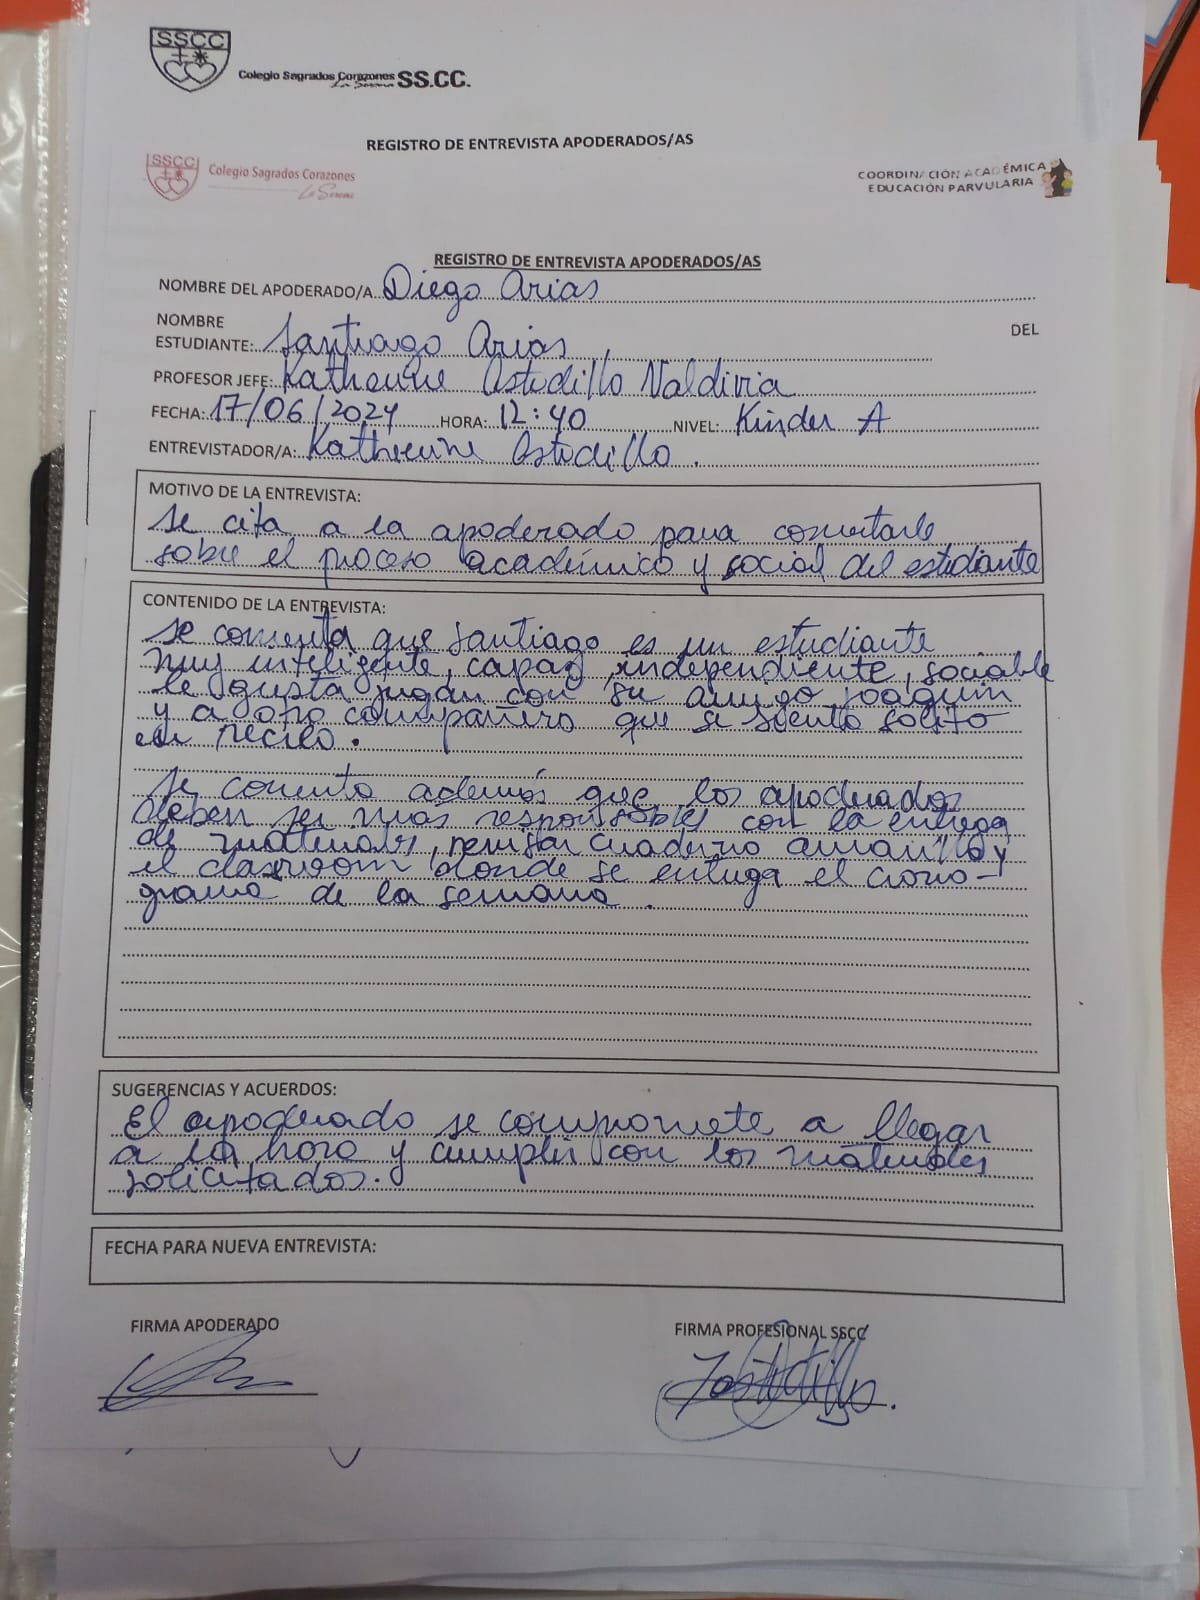 SSCC
Colegio Sagrados Corazones SS.CC.
La Serena
REGISTRO DE ENTREVISTA APODERADOS/AS
SSCC
Colegio Sagrados Corazones
La Serena
COORDINACIÓN ACADÉMICA
EDUCACIÓN PARVULARIA
REGISTRO DE ENTREVISTA APODERADOS/AS
NOMBRE DEL APODERADO/A Diego Arias
NOMBRE DEL
ESTUDIANTE: Santiago Arias
PROFESOR JEFE: Katherine Astudillo Valdivia
FECHA: 17/06/2024 HORA: 12:40 NIVEL: Kinder A
ENTREVISTADOR/A: Katherine Astudillo.
MOTIVO DE LA ENTREVISTA:
Se cita a la apoderado para comentarle
sobre el proceso académico y social del estudiante
CONTENIDO DE LA ENTREVISTA:
Se comenta que Santiago es un estudiante
muy inteligente, capaz, independiente, sociable
le gusta jugar con su amigo Joaquin
y a otro compañero que se siente solito
en recreo.
Se comenta además que los apoderados
deben ser mas responsables con la entrega
de materiales, revisar cuaderno amarillo y
el classroom donde se entrega el crono-
grama de la semana.
SUGERENCIAS Y ACUERDOS:
El apoderado se compromete a llegar
a la hora y cumplir con los materiales
solicitados.
FECHA PARA NUEVA ENTREVISTA:
FIRMA APODERADO FIRMA PROFESIONAL SSCC